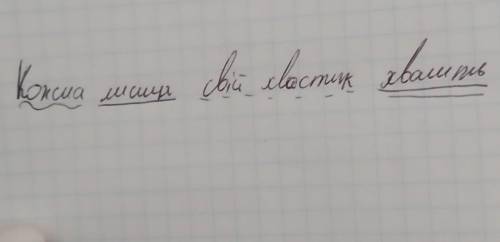 Кожна лисиця свій хвостик хвалить